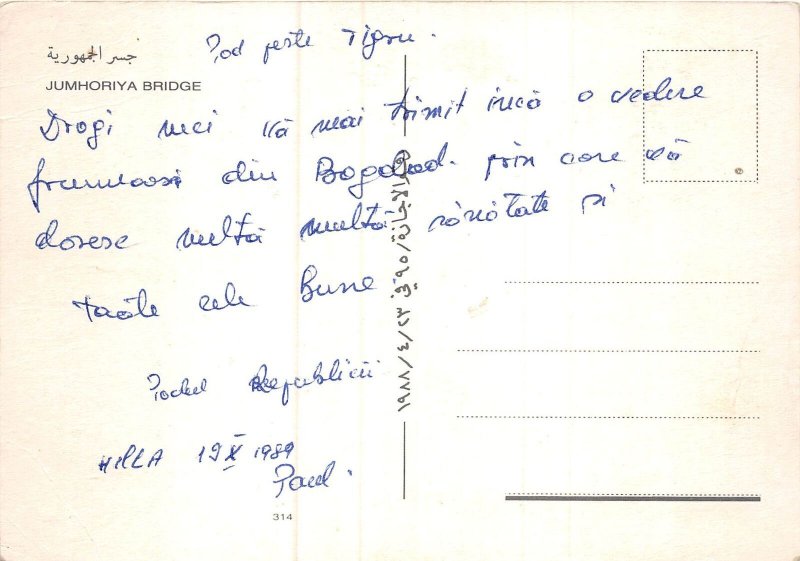 جسر الجمهورية
JUMHORIYA BRIDGE
Pod peste Tigru.
Dragi mei vă mai trimit încă o vedere
frumoasă din Bagdad. prin care vă
doresc multă multă sănătate și
toate cele Bune
Podul Republicii
HILLA 19 X 1989
Paul.
314
رقم الاجازة/٩٥ في ١٩٨٨/٤/٢٣